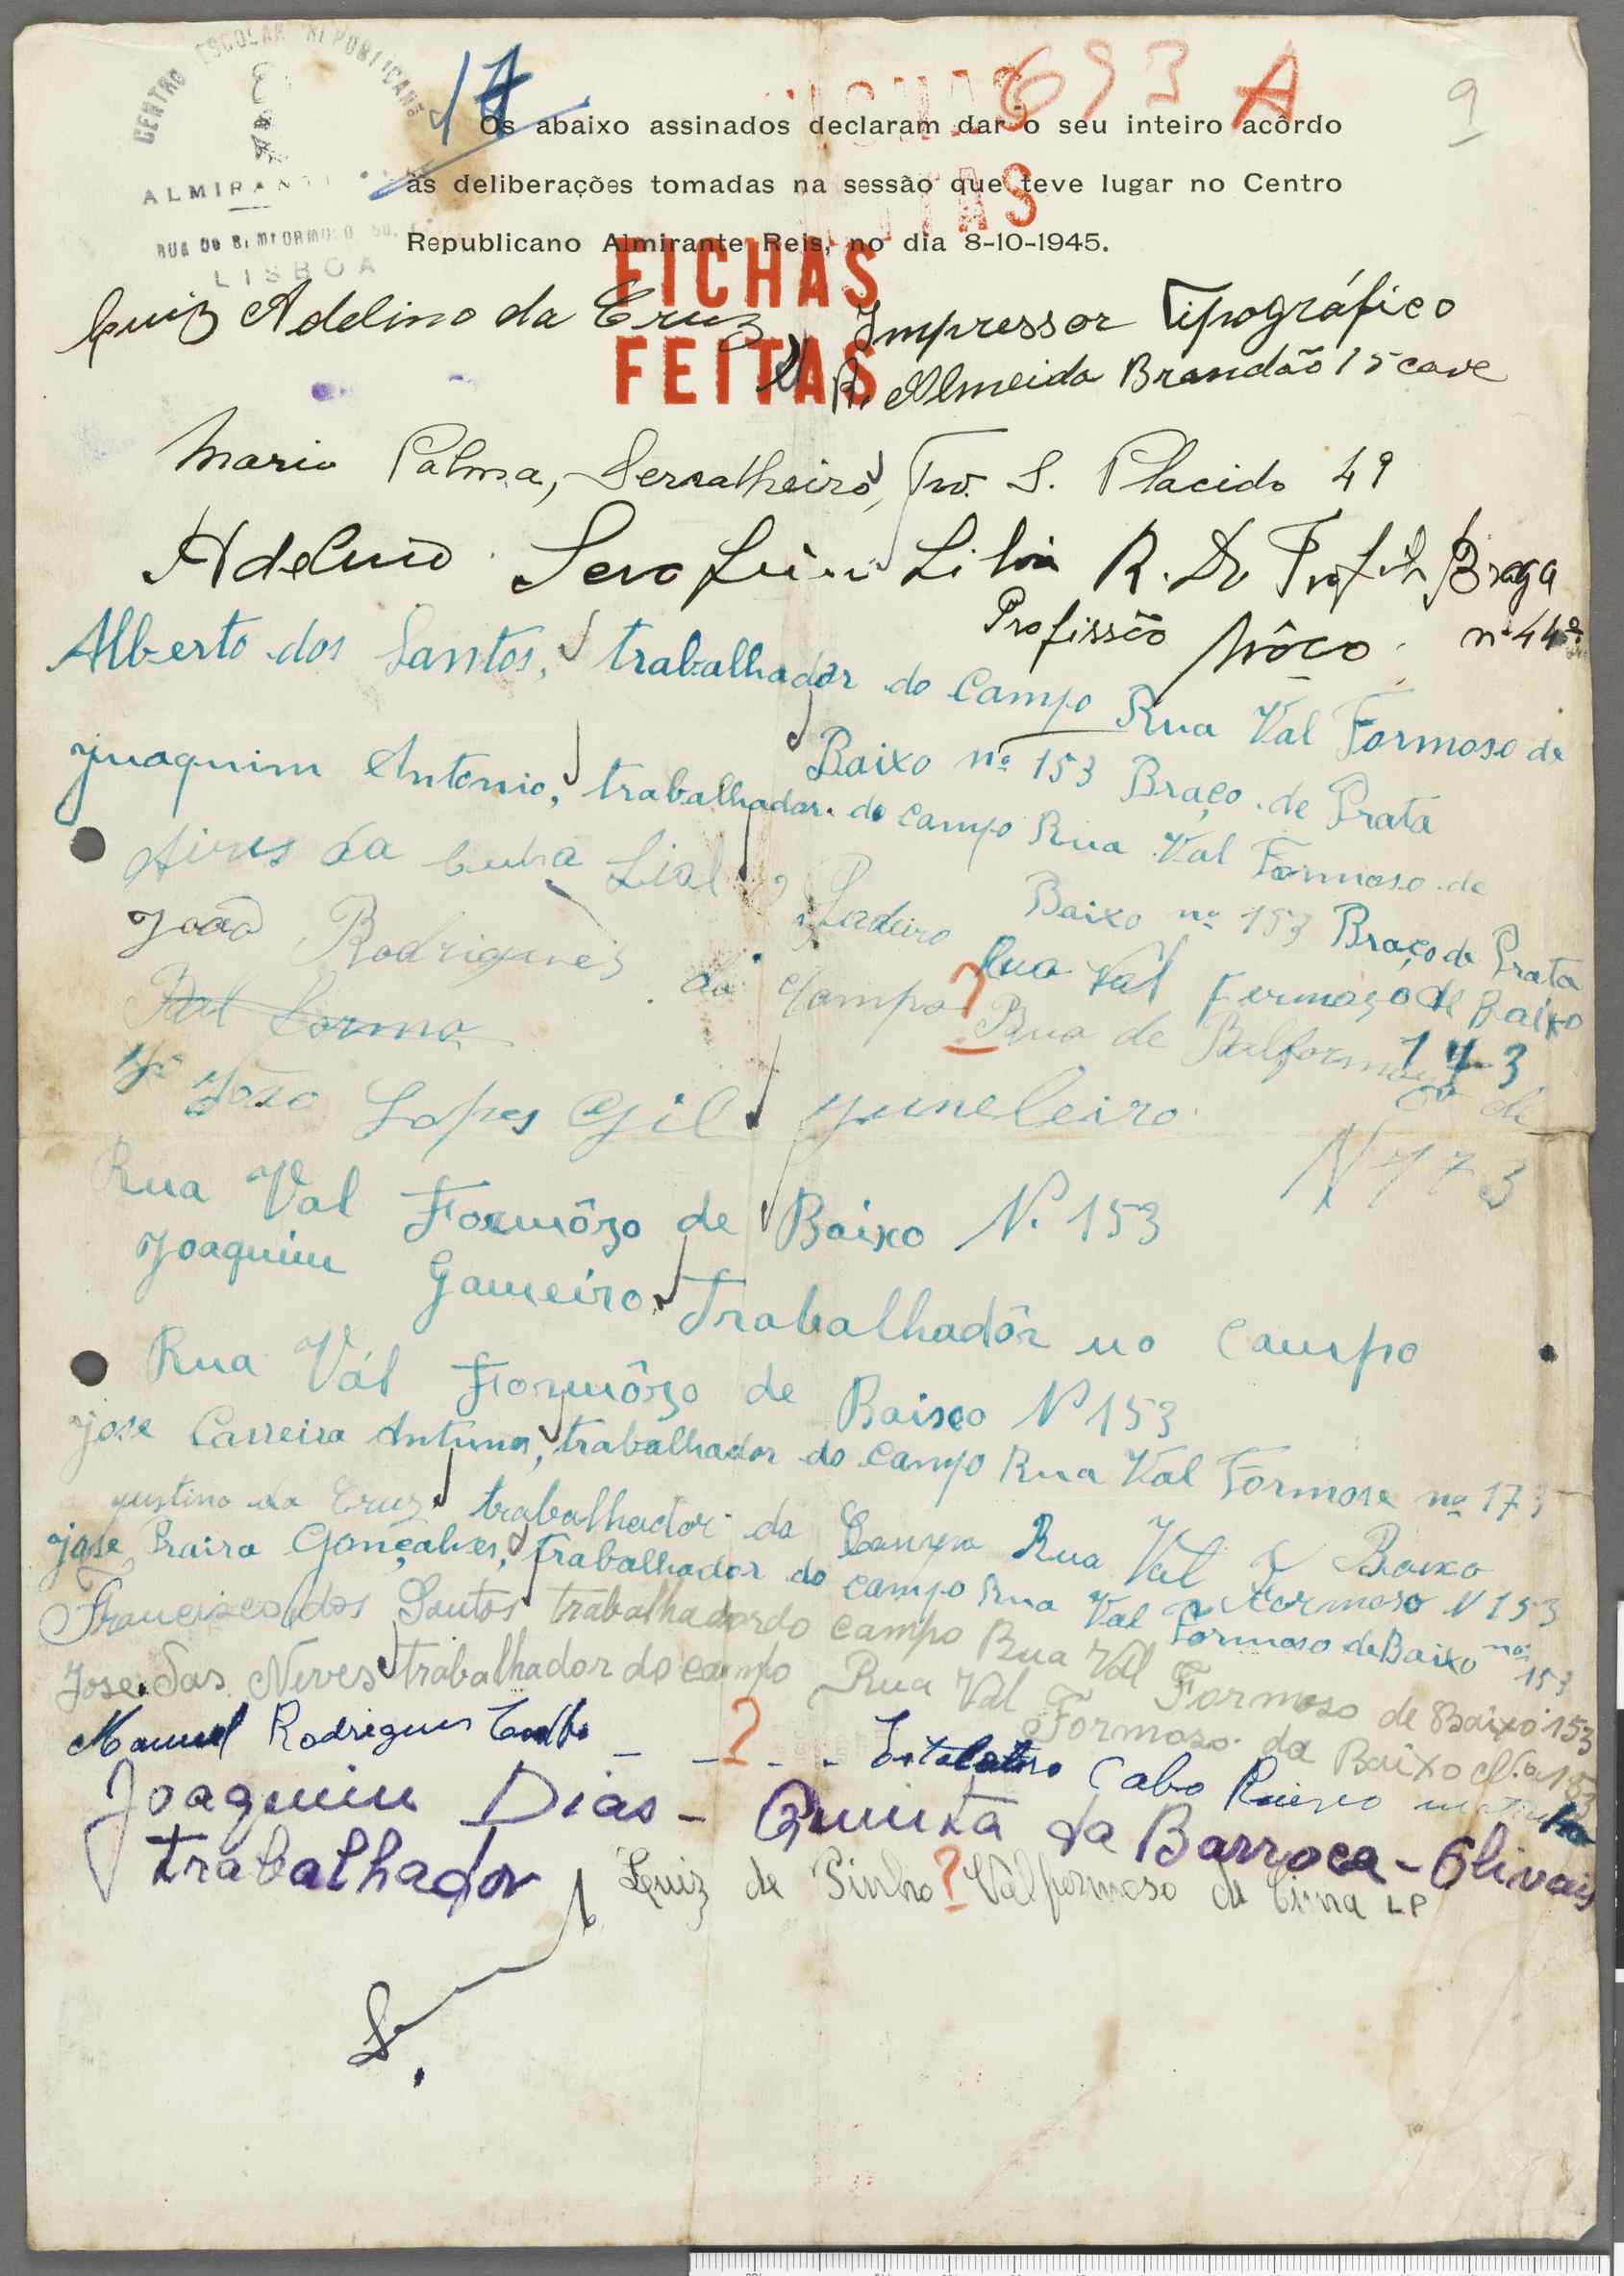 CENTRO ESCOLAR REPUBLICANO
ALMIRANTE
RUA DO BEMFORMOSO 50
LISBOA
17
693 A
9
Os abaixo assinados declaram dar o seu inteiro acôrdo
às deliberações tomadas na sessão que teve lugar no Centro
Republicano Almirante Reis, no dia 8-10-1945.
FICHAS
FEITAS
FICHAS
FEITAS
Luiz Adelino da Cruz, Impressor Tipográfico
R. Almeida Brandão 15 cave
Mario Palma, Serralheiro, Trv. S. Placido 49
Adelino Serafim Silva R. Dr Braga
Profissão Môco nº 44
Alberto dos Santos, trabalhador do Campo Rua Val Formoso de
Baixo nº 153 Braço de Prata
Juaquim Antonio, trabalhador do campo Rua Val Formoso de
Baixo nº 153 Braço de Prata
Aires da Lial
Rua Val Fermozo de Baixo
143
João Rodrigues do Campo ? Rua de
de
N 173
João Lopes Gil
Rua Val Formôzo de Baixo N. 153
Joaquim Gameiro Trabalhadôr no Campo
Rua Vál Formôzo de Baixo Nº 153
Jose Carreira Antunes, trabalhador do campo Rua Val Formose nº 173
justino da Cruz trabalhador do Campo Rua Val de Baixo
Formoso N 153
jose Praira Gonçalves, trabalhador do campo Rua Val Formoso de Baixo nº 153
Francisco dos Santos trabalhador do campo Rua Val Formoso de Baixo 153
Jose das Neves trabalhador do campo Rua Val Formoso da Baixo N.º 153
Manuel Rodrigues ? Cabo Ruivo
Joaquim Dias - Quinta da Barroca - Olivais
trabalhador
Luiz de Pinho ? Valformoso de Cima LP